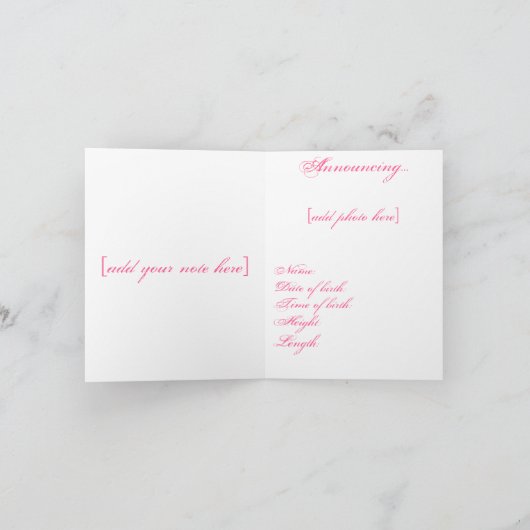 [add your note here]
Announcing...
[add photo here]
Name:
Date of birth:
Time of birth:
Height:
Length: